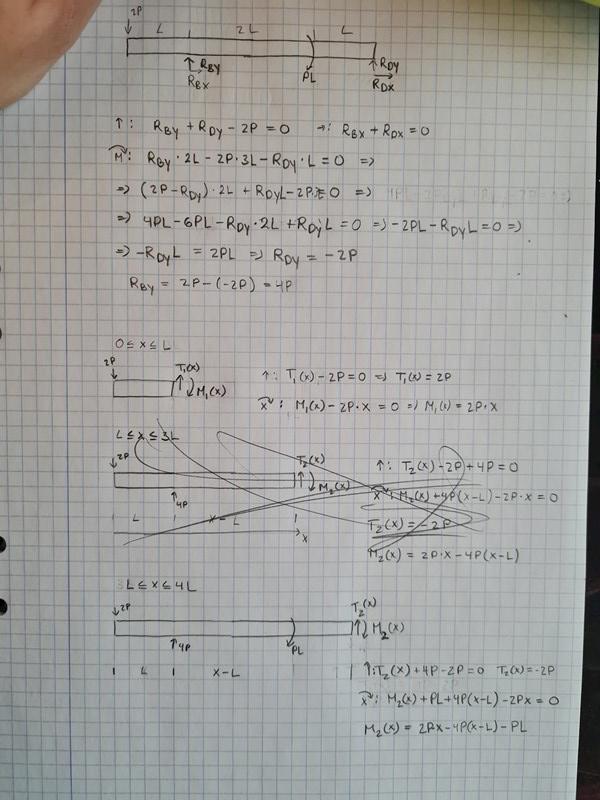 2P
L 2L L
R_BY PL R_DY
R_BX R_DX
↑: R_BY + R_DY - 2P = 0 →: R_BX + R_DX = 0
M: R_BY · 2L - 2P · 3L - R_DY · L = 0 =>
=> (2P - R_DY) · 2L + R_DY L - 2P = 0 =>
=> 4PL - 6PL - R_DY · 2L + R_DY L = 0 => -2PL - R_DY L = 0 =>
=> -R_DY L = 2PL => R_DY = -2P
R_BY = 2P - (-2P) = 4P
0 ≤ x ≤ L
2P T₁(x)
M₁(x)
↑: T₁(x) - 2P = 0 => T₁(x) = 2P
x: M₁(x) - 2P · x = 0 => M₁(x) = 2P · x
L ≤ x ≤ 3L
2P T₂(x)
M₂(x)
4P
L x - L
x
↑: T₂(x) - 2P + 4P = 0
x: M₂(x) + 4P(x-L) - 2P · x = 0
T₂(x) = -2P
M₂(x) = 2P · x - 4P(x-L)
3L ≤ x ≤ 4L
2P T₂(x)
M₂(x)
4P PL
L x - L
↑: T₂(x) + 4P - 2P = 0 T₂(x) = -2P
x: M₂(x) + PL + 4P(x-L) - 2Px = 0
M₂(x) = 2Px - 4P(x-L) - PL